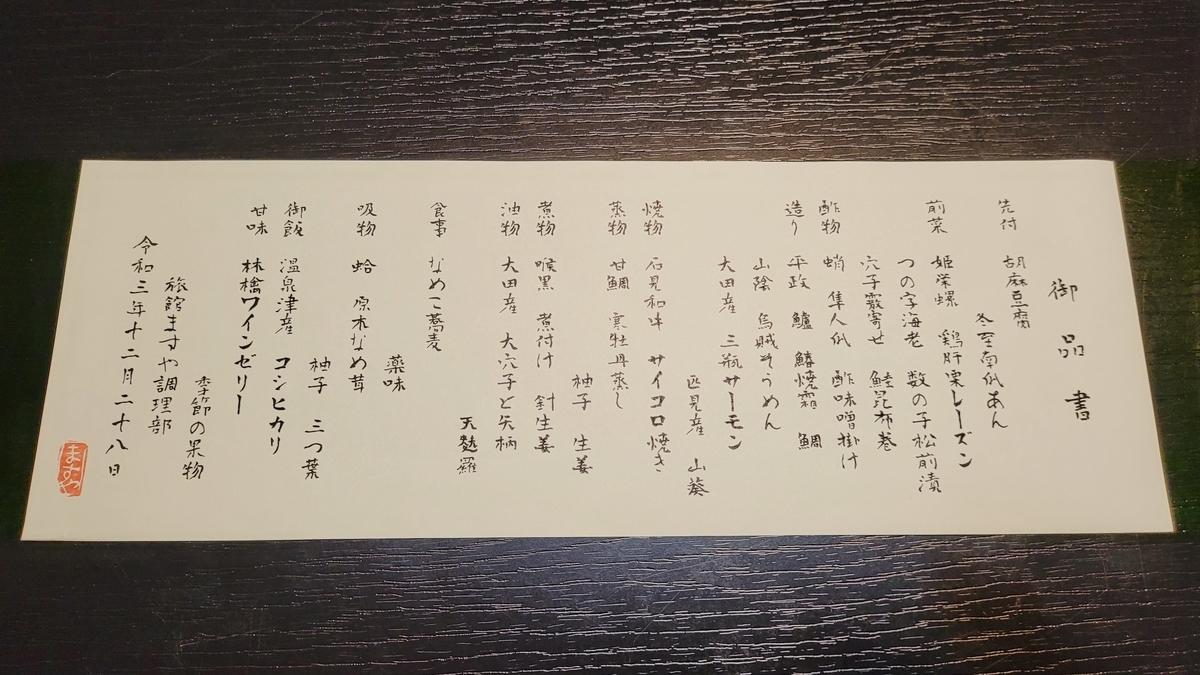 御品書
先付 胡麻豆腐
冬至南瓜あん
前菜 姫栄螺 鶏肝栗レーズン
つの字海老 数の子松前漬
穴子霰寄せ 鮭昆布巻
酢物 蛸 隼人瓜 酢味噌掛け
造り 平政 鱸 鰆焼霜 鯛
山陰 烏賊そうめん
大田産 三瓶サーモン
匹見産 山葵
焼物 石見和牛 サイコロ焼き
蒸物 甘鯛 寒牡丹蒸し
柚子 生姜
煮物 喉黒 煮付け 針生姜
油物 大田産 大穴子と矢柄
天麩羅
食事 なめこ蕎麦
薬味
吸物 蛤 原木なめ茸
柚子 三つ葉
御飯 温泉津産 コシヒカリ
甘味 林檎ワインゼリー
季節の果物
旅館ますや調理部
令和三年十二月二十八日
ますや